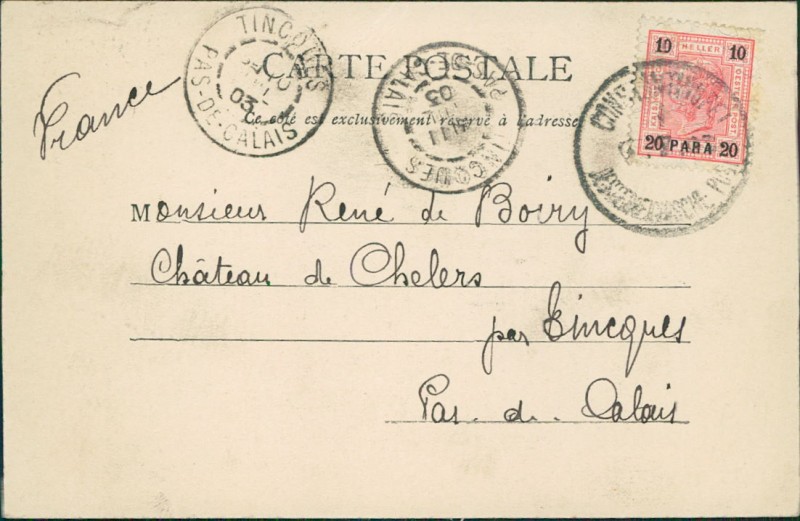 France
CARTE POSTALE
Ce côté est exclusivement réservé à l'adresse
TINCQUES
PAS-DE-CALAIS
03
TINCQUES
CALAIS
03
10 HELLER 10
20 PARA 20
Monsieur René de Boiry
Château de Chelers
par Tincques
Pas-de-Calais